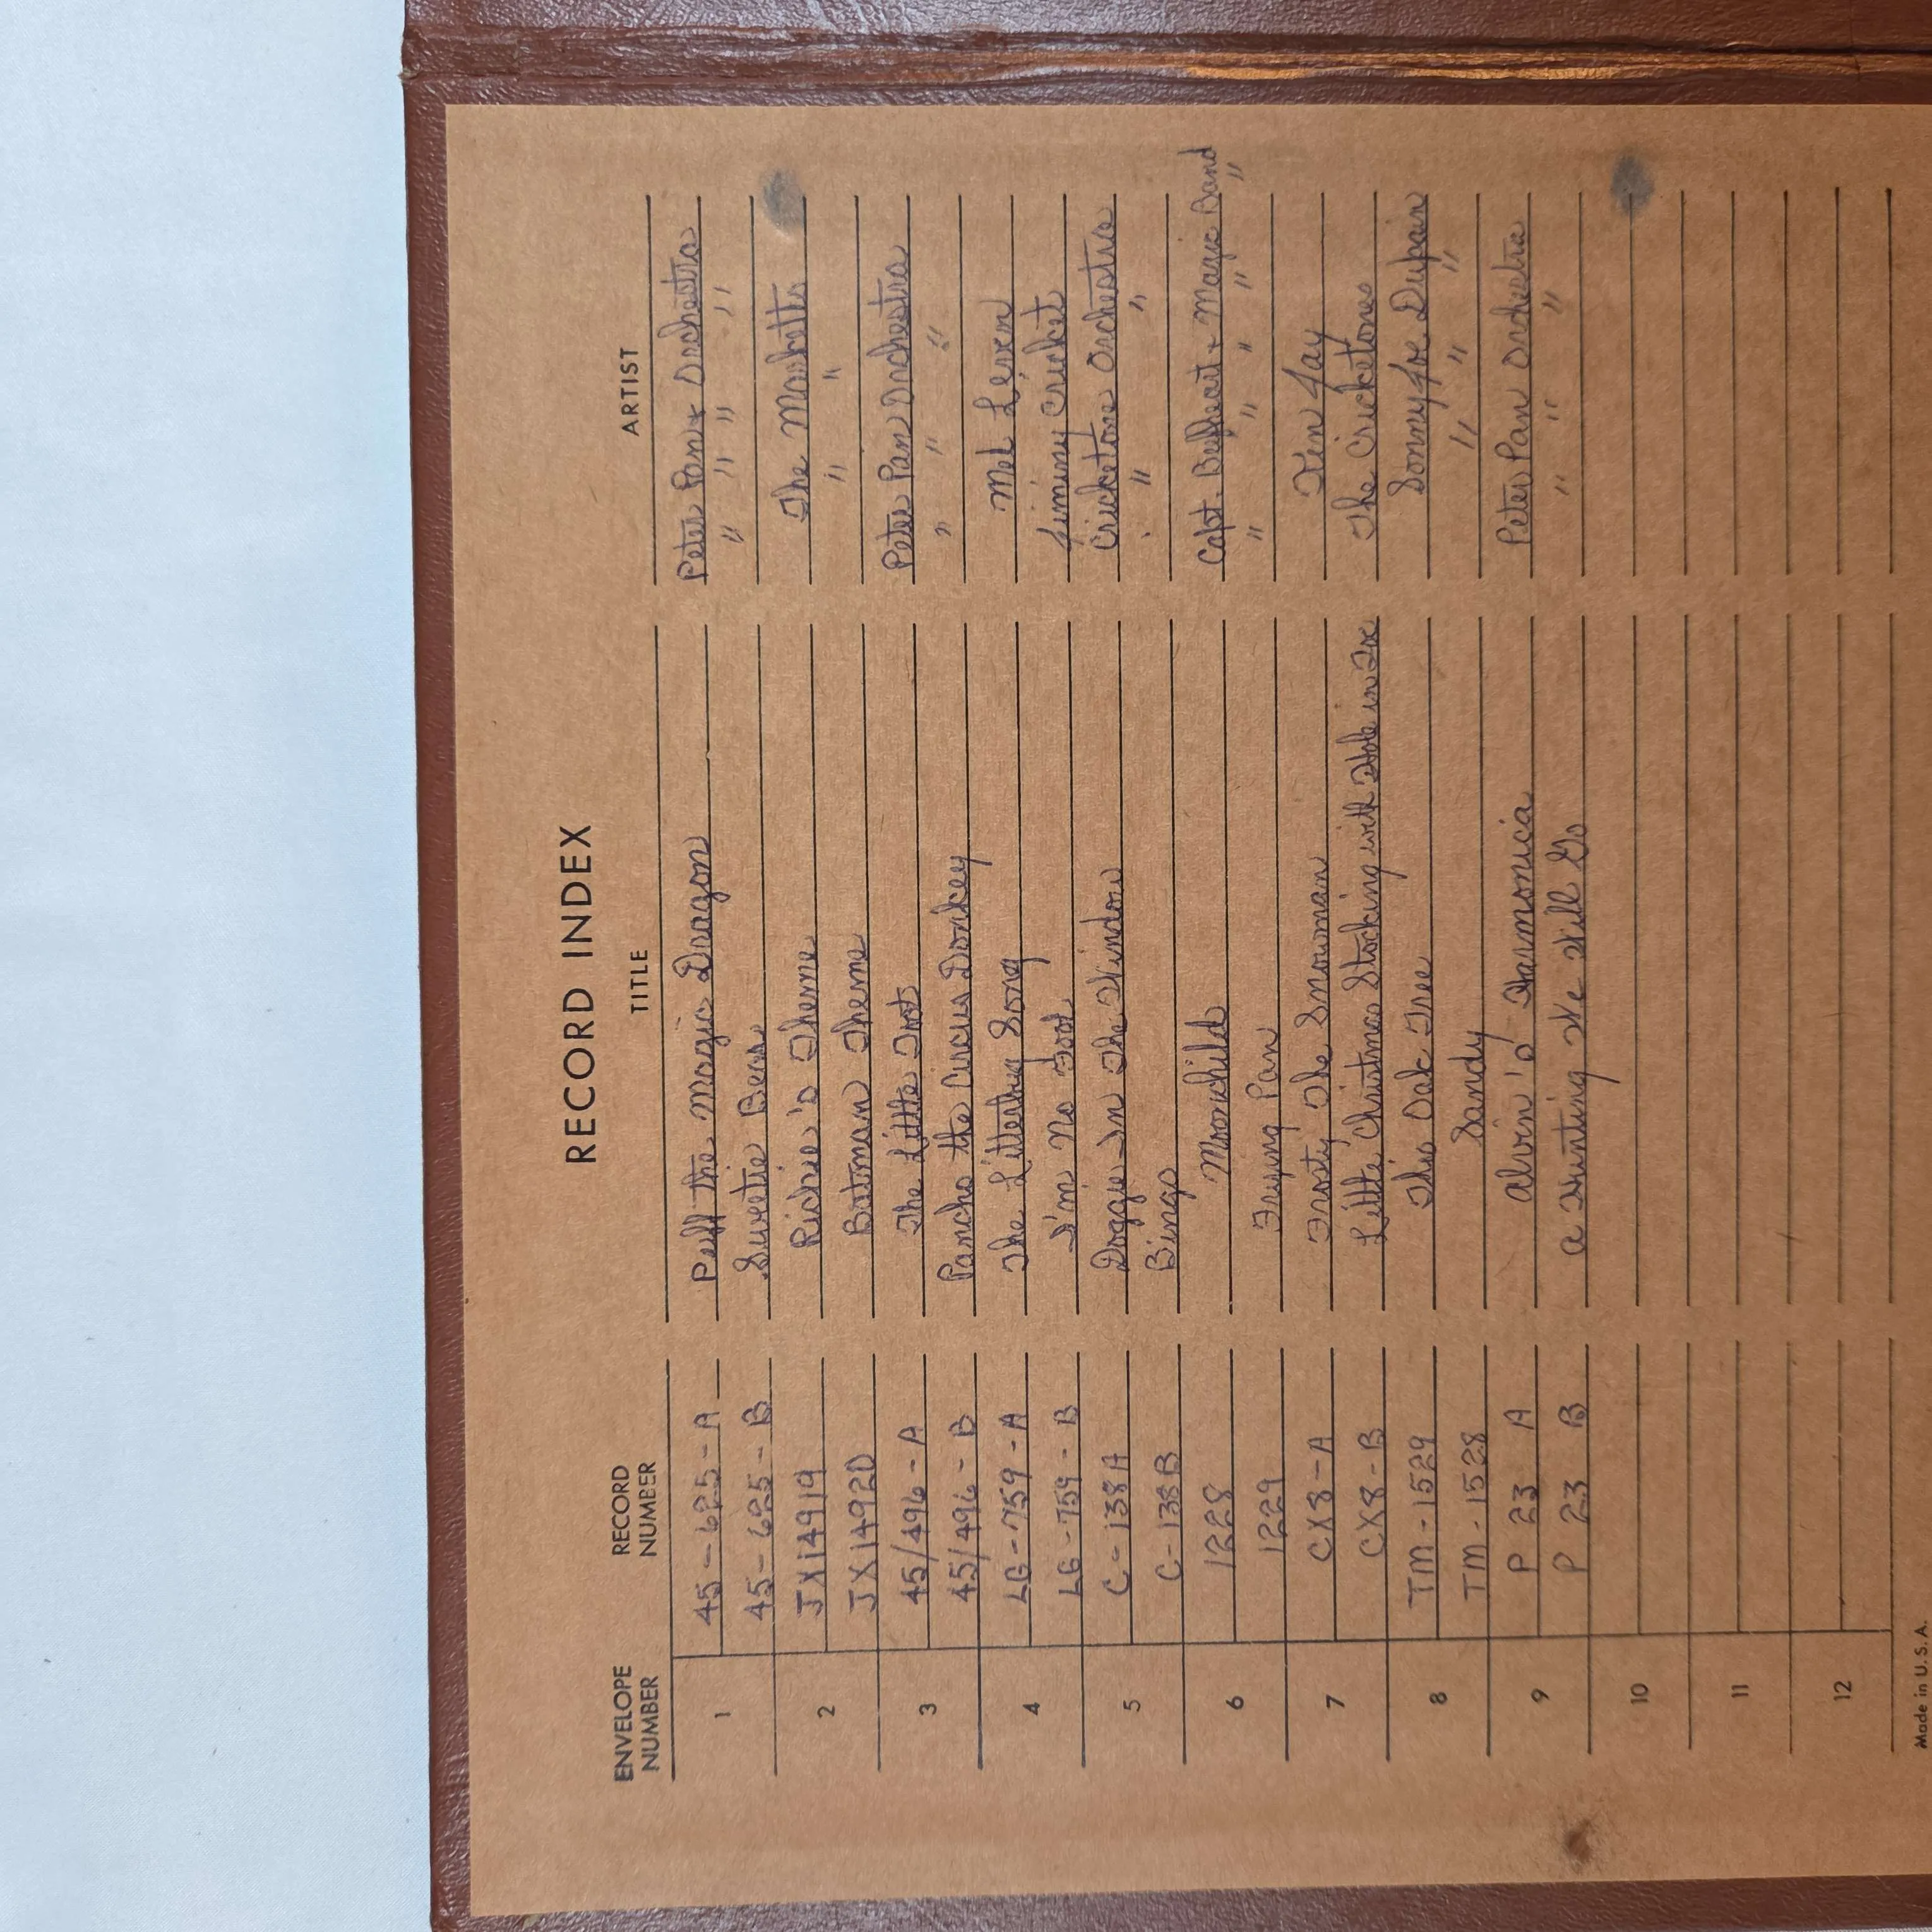 RECORD INDEX
ENVELOPE NUMBER RECORD NUMBER TITLE ARTIST
1 45-625-A Puff the Magic Dragon Peter Pan + Orchestra
45-625-B Sweetie Bear " " " "
2 JX14919 Richie's Theme The Marketts
JX14920 Batman Theme " "
3 45/496-A The Little Toot Peter Pan Orchestra
45/496-B Pancho the Circus Donkey " " "
4 LG-759-A The Litterbug Song Mel Leven
LG-759-B I'm No Fool Jiminy Cricket
5 C-138A Doggie In The Window Cricketone Orchestra
C-138B Bingo " "
6 1228 Moonchild Capt. Beefheart + Magic Band
1229 Frying Pan " " " " "
7 CX8-A Frosty The Snowman Jay
CX8-B Little Christmas Stocking with Hole in Toe The Cricketones
8 TM-1529 This Oak Tree Sonny Joe Dupain
TM-1528 Sandy " " "
9 P 23 A Alvin's Harmonica Peter Pan Orchestra
P 23 B A Hunting We Will Go " " "
10
11
12
Made in U.S.A.